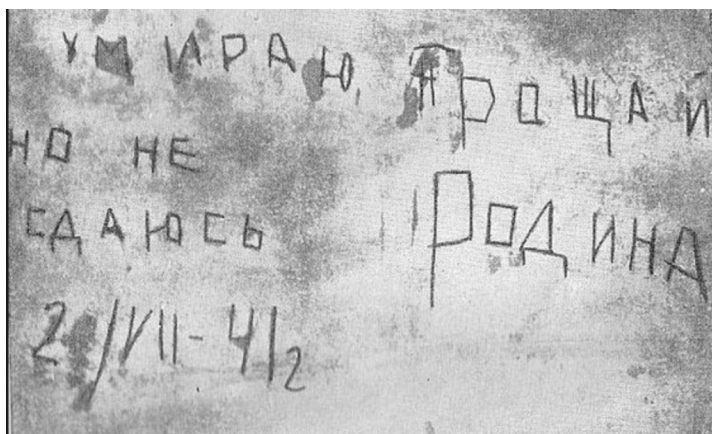 УМИРАЮ,
НО НЕ
СДАЮСЬ
ПРОЩАЙ
РОДИНА
20/VII-41г